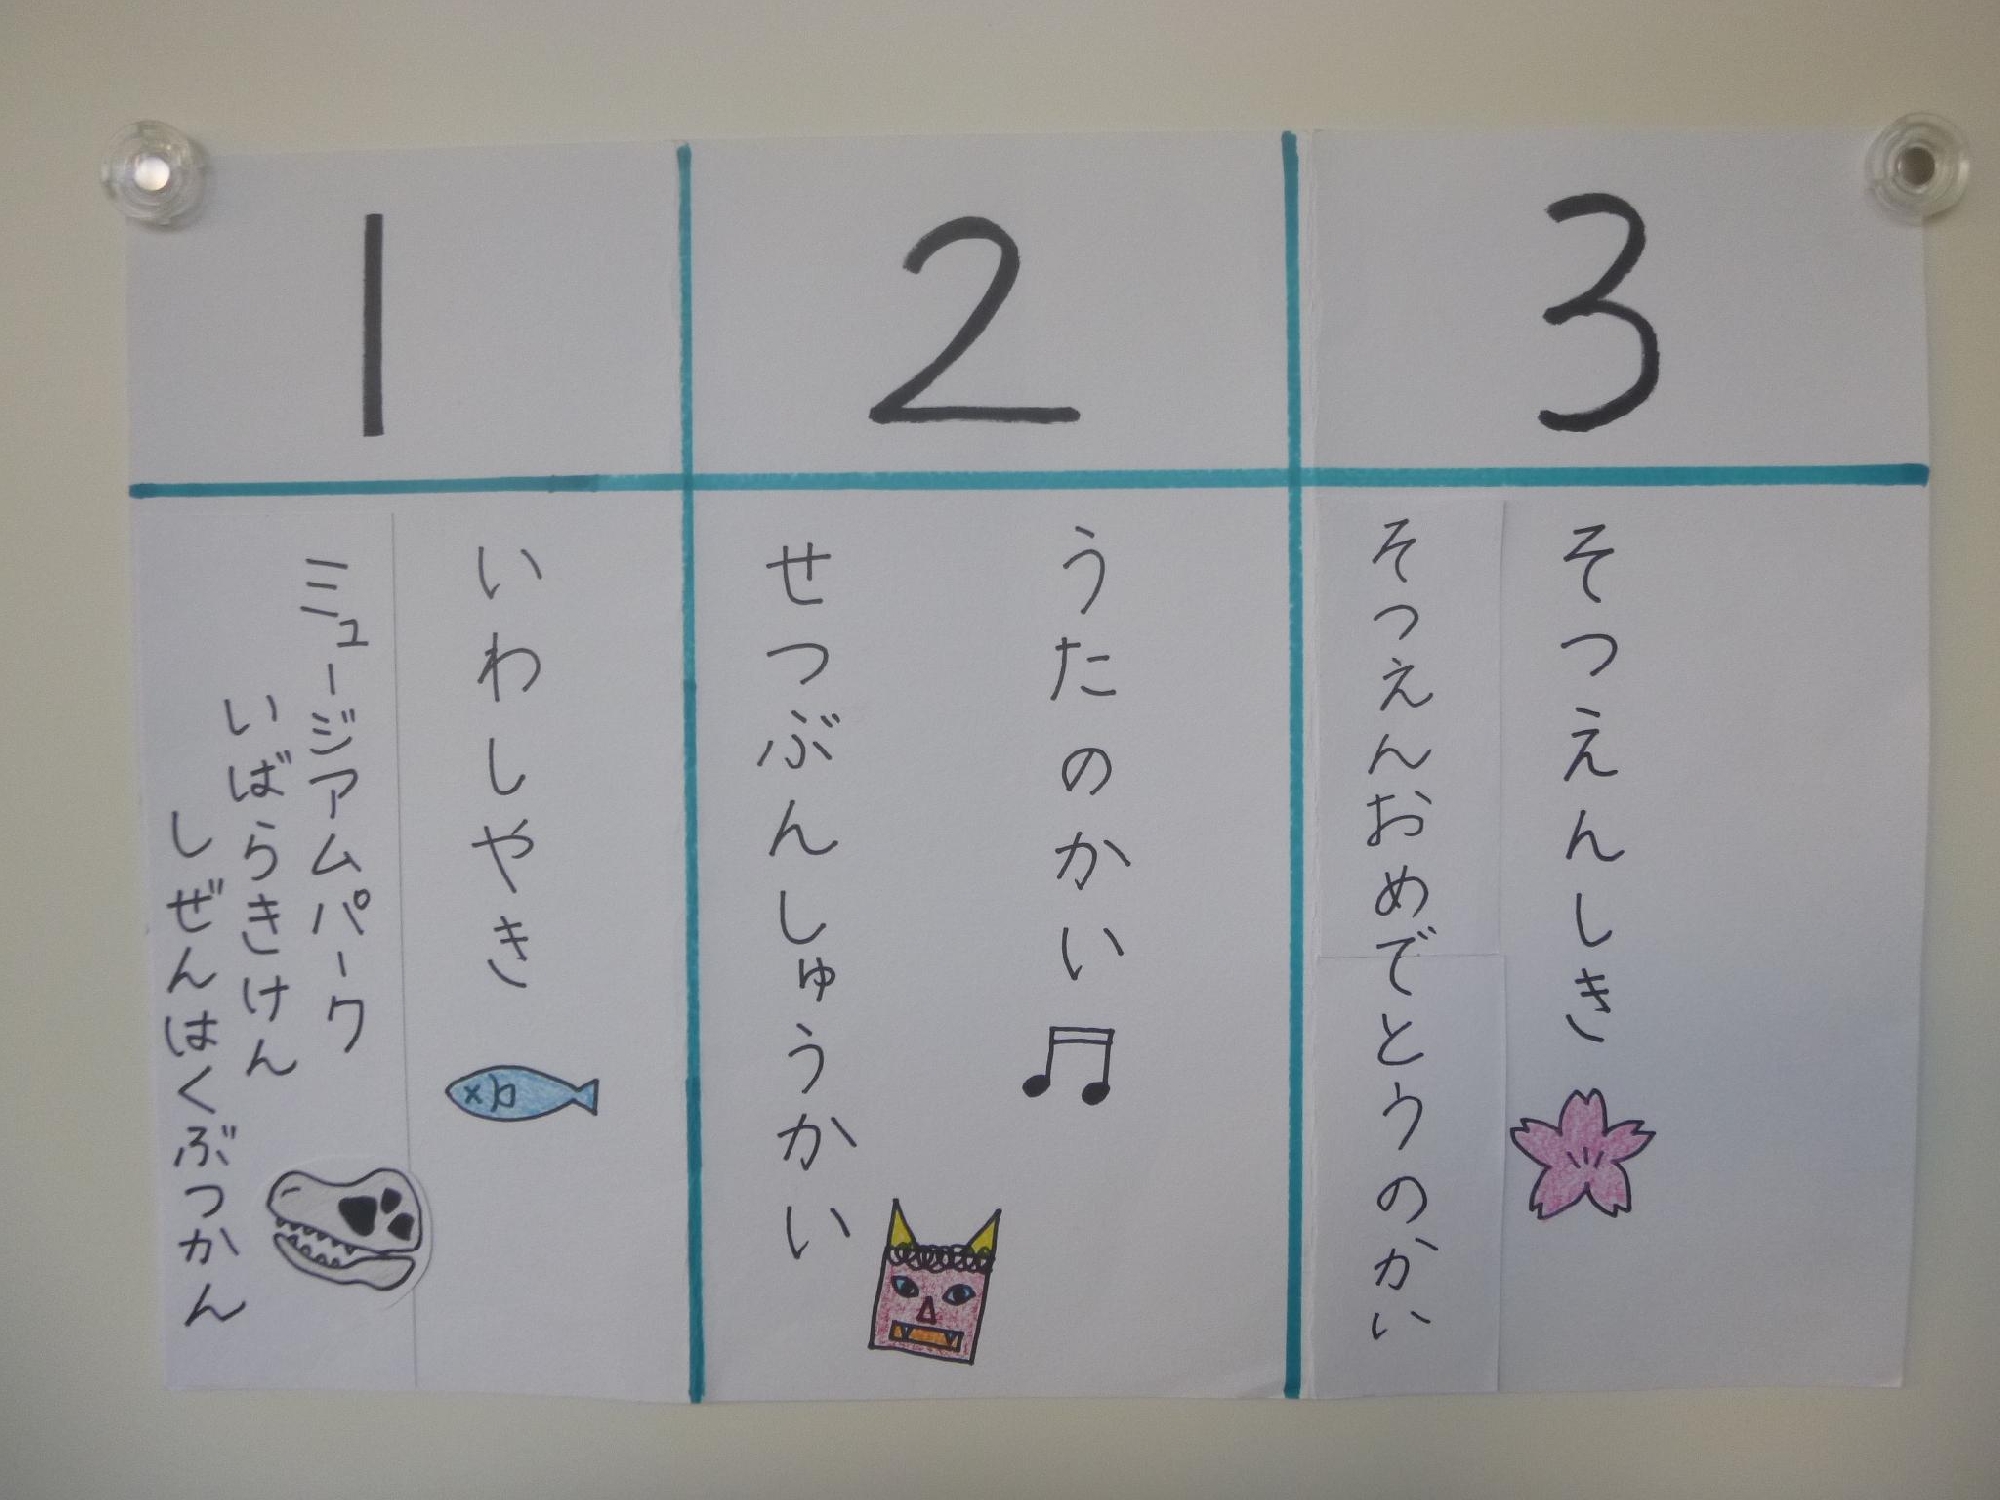 1
いわしやき
ミュージアムパーク
いばらきけん
しぜんはくぶつかん
2
うたのかい
せつぶんしゅうかい
3
そつえんしき
そつえんおめでとうのかい